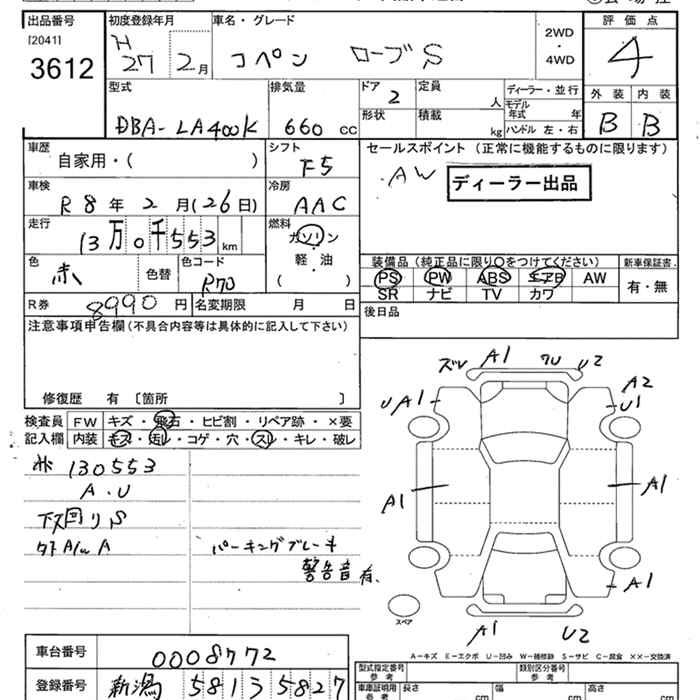 出品番号 初度登録年月 車名・グレード 2WD・4WD 評価点
[2041]
3612
H27 2月 コペン ローブS 4
型式 排気量 ドア 2 定員 人 ディーラー・並行 外装 内装
DBA-LA400K 660 cc 形状 積載 kg モデル年式 年 ハンドル 左・右 B B
車歴 シフト セールスポイント (正常に機能するものに限ります)
自家用・( ) F5 AW ディーラー出品
車検 冷房
R8年2月(26日) AAC
走行 燃料
13万0千553km ガソリン・軽油・( )
色 色替 色コード 装備品 (純正品に限り○をつけてください) 新車保証書
赤 R70 PS PW ABS エアB AW 有・無
SR ナビ TV カワ
R券 8990円 名変期限 月 日 後日品
注意事項申告欄 (不具合内容等は具体的に記入して下さい)
修復歴 有 〔箇所 〕
検査員記入欄 FW キズ・飛石・ヒビ割・リペア跡・×要
内装 キズ・汚レ・コゲ・穴・スレ・キレ・破レ
130553
A・U
下回りS
外A/W A
パーキングブレーキ
警告音有.
ズレ A1 ワレ U2
UA1 A2
U1
A1 A1
A1
スペア
A1 U2
A-キズ E-エクボ U-凹み W-補修跡 S-サビ C-腐食 XX-交換済
車台番号 0008772
登録番号 新潟 581 ア 5827
型式指定番号 参考 類別区分番号 参考
車庫証明用 参考 長さ cm 幅 cm 高さ cm